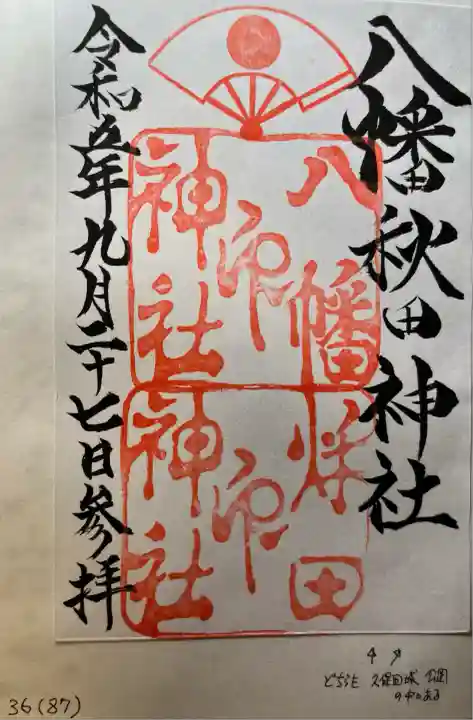 八幡秋田神社
八幡
神社
印
秋田
神社
印
令和五年九月二十七日参拝
どちらも 久保田城 公園
の中にある
36(87)